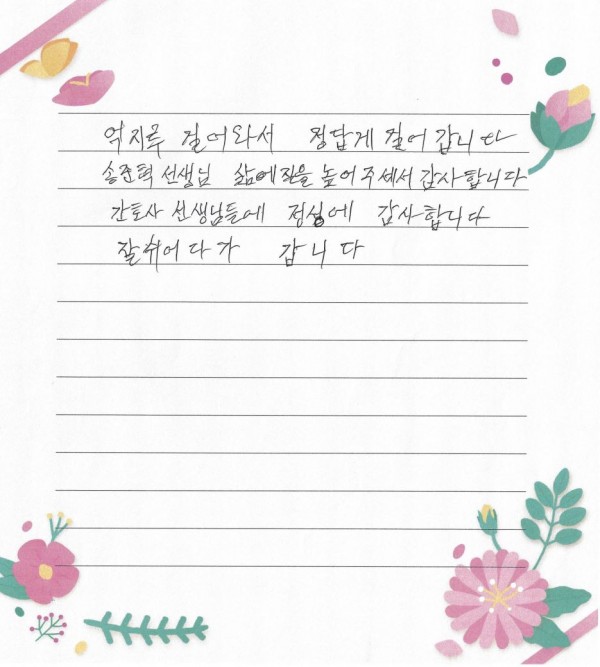 억지루 걸어와서 정답게 걸어 갑니다
송준혁 선생님 삶에 질을 높여 주셔서 감사합니다
간호사 선생님들에 정성에 감사합니다
잘쉬어다가 갑니다